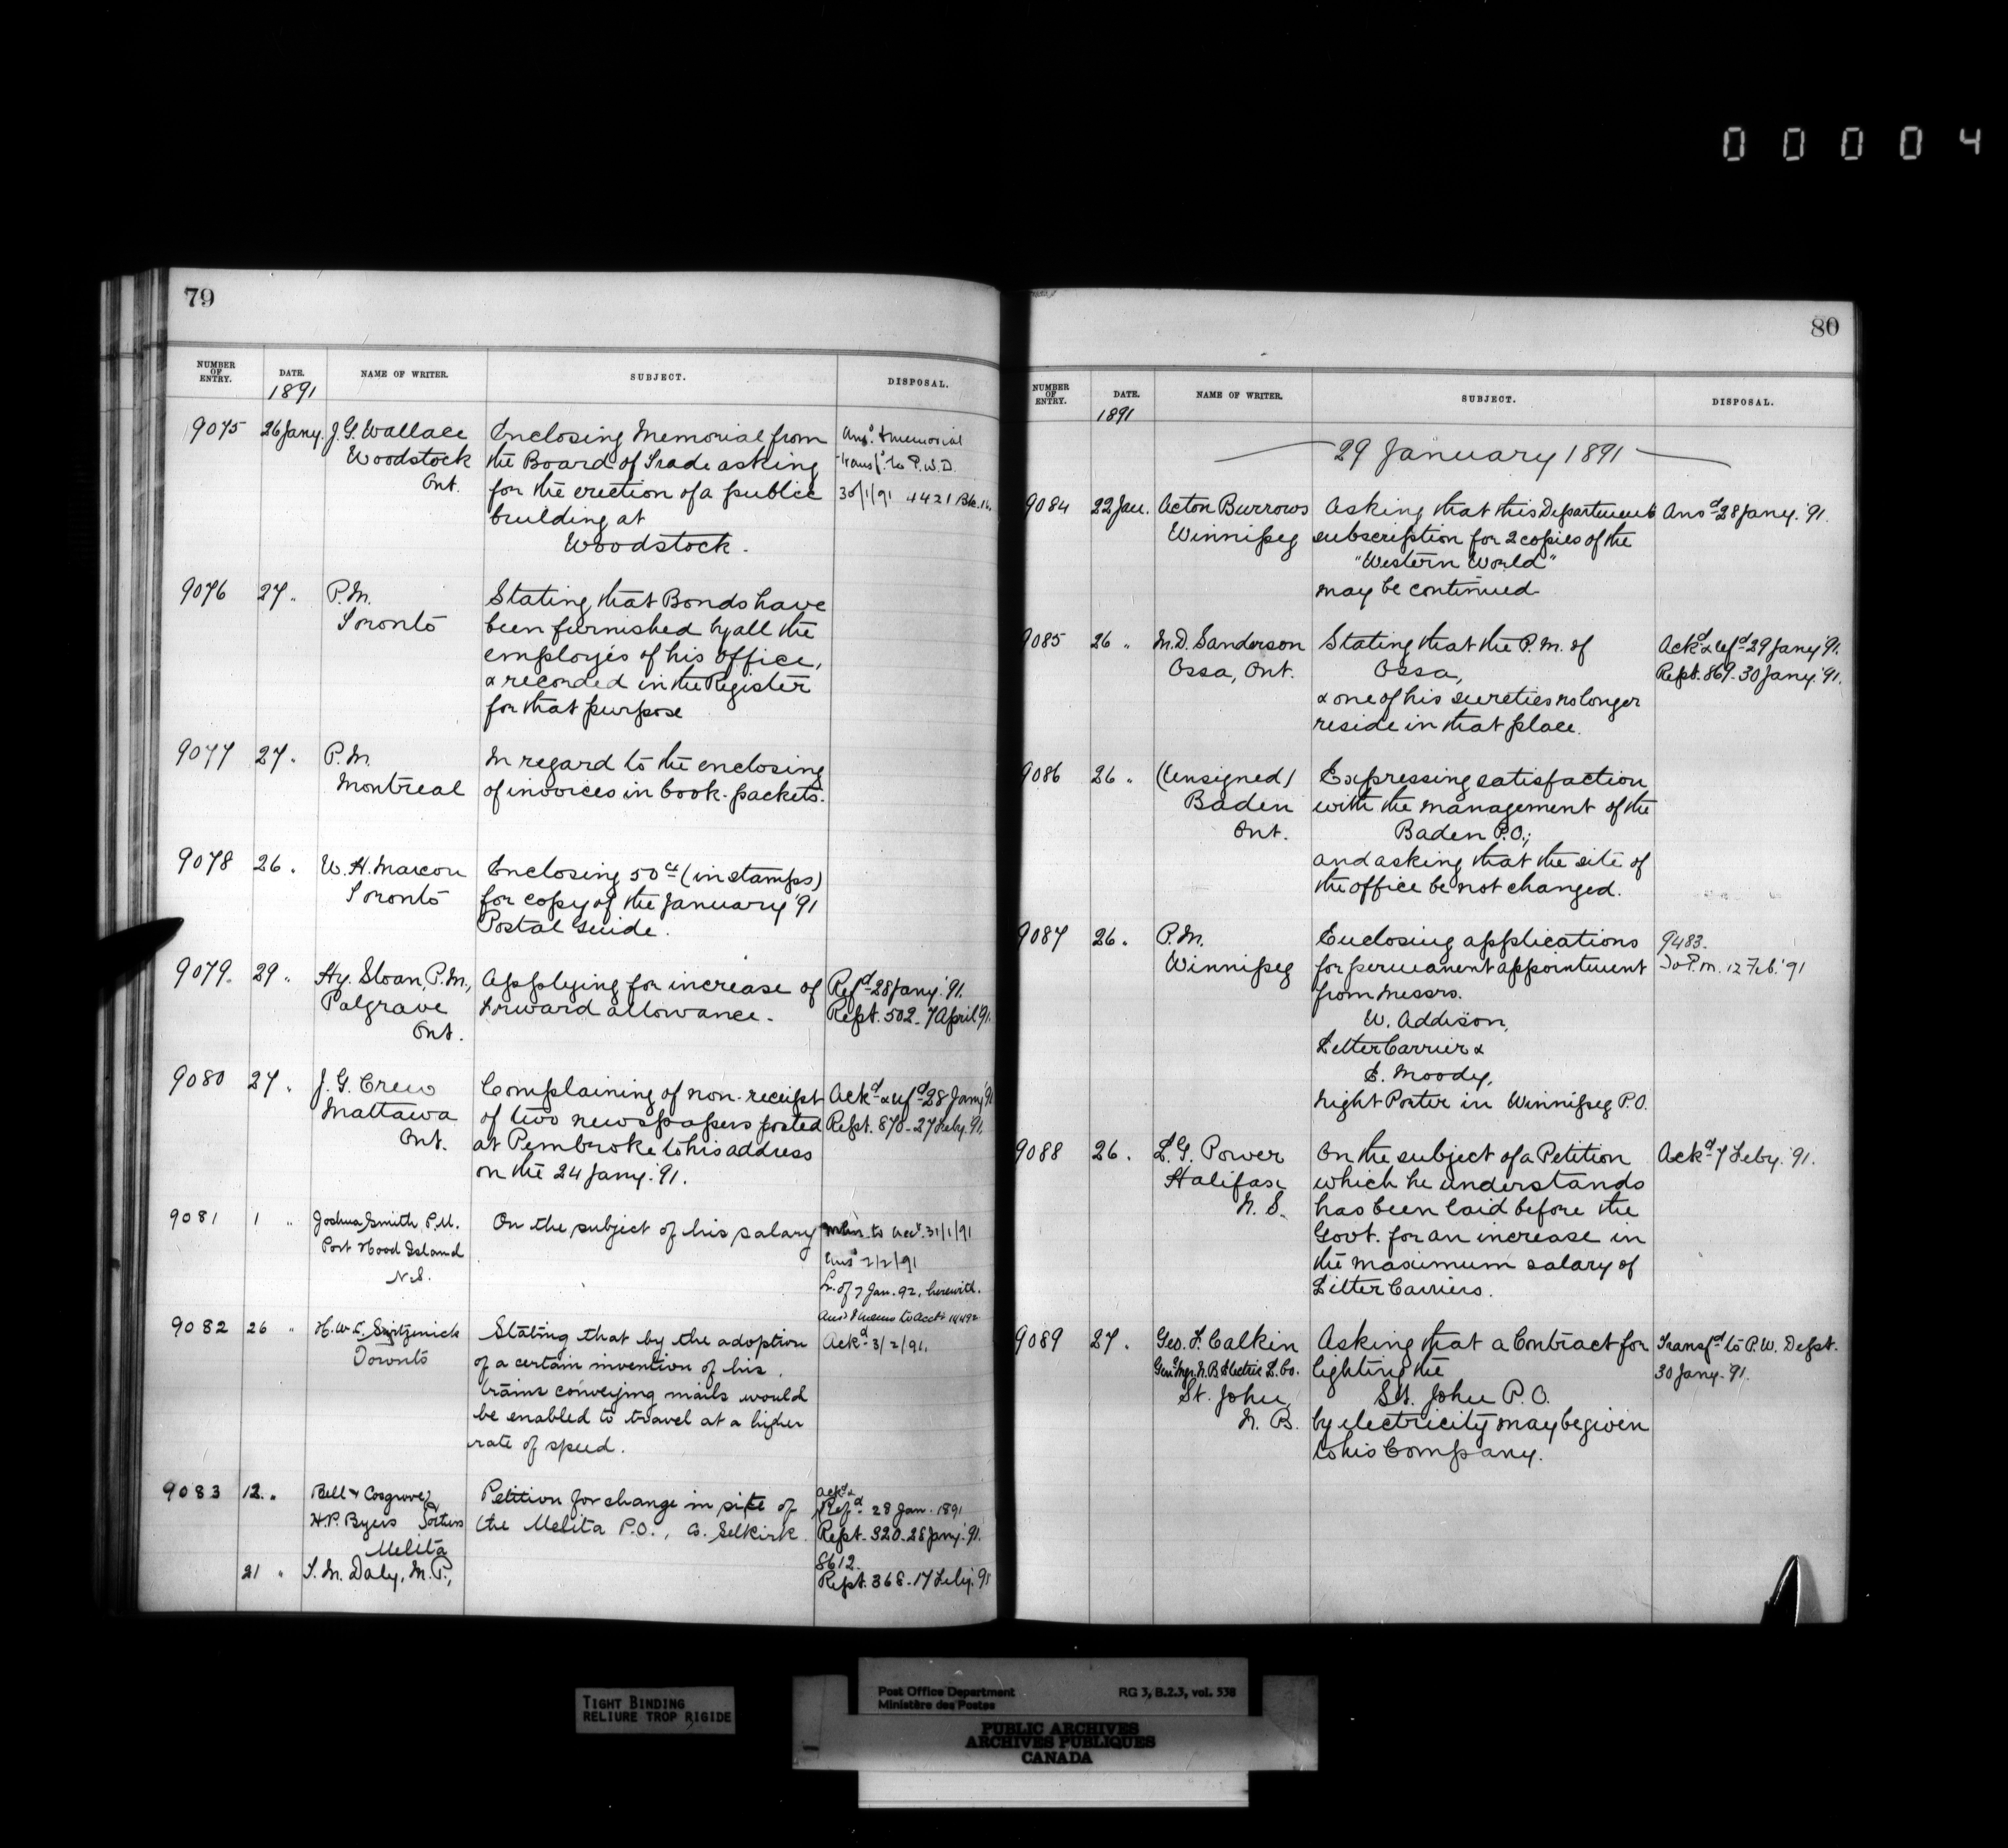 00004
79
NUMBER OF ENTRY. DATE. NAME OF WRITER. SUBJECT. DISPOSAL.
1891
9075 26 Jany. J. G. Wallace Enclosing Memorial from Ansd. & memorial
Woodstock the Board of Trade asking transfd. to P.W.D.
Ont. for the erection of a public 30/1/91 4421
building at
Woodstock.
9076 27 " P.M. Stating that Bonds have
Toronto been furnished by all the
employés of his office,
& recorded in the Register
for that purpose
9077 27 " P.M. In regard to the enclosing
Montreal of invoices in book-packets.
9078 26 " W. H. Marcon Enclosing 50 cts (in stamps)
Toronto for copy of the January '91
Postal Guide.
9079. 29 " Hy. Sloan, P.M., Applying for increase of Refd 28 Jany. '91.
Palgrave forward allowance. Rept. 502 - 7 April '91.
Ont.
9080 27 " J. G. Crew Complaining of non-receipt Ackd & refd 28 Jany '91
Mattawa of two newspapers posted Rept. 870 - 27 Feby. '91.
Ont. at Pembroke to his address
on the 24 Jany. '91.
9081 1 " Joshua Smith, P.M. On the subject of his salary Mem to Acct. 31/1/91
Port Hood Island Ansd 2/2/91
N.S. L. of 7 Jan. 92, herewith.
Ansd & memo to Acct
9082 26 " H. W. Toronto Stating that by the adoption Ackd 3/2/91.
of a certain invention of his,
trains conveying mails would
be enabled to travel at a higher
rate of speed.
9083 12 " Bell & Cosgrove, Petition for change in site of Ackd &
H.P. Byers & others the Melita P.O., Co. Selkirk. Refd 28 Jan. 1891
Melita Rept. 320 - 28 Jany. '91.
8612.
21 " T. M. Daly, M.P., Rept. 368 - 17 Feby. '91
80
NUMBER OF ENTRY. DATE. NAME OF WRITER. SUBJECT. DISPOSAL.
1891
29 January 1891
9084 22 Jan. Acton Burrows Asking that this Department Ansd 28 Jany. '91.
Winnipeg subscription for 2 copies of the
"Western World"
may be continued
9085 26 " M.D. Sanderson Stating that the P.M. of Ackd & refd 29 Jany '91.
Ossa, Ont. Ossa, Rept. 869 - 30 Jany. '91.
& one of his sureties no longer
reside in that place.
9086 26 " (Unsigned) Expressing satisfaction
Baden with the management of the
Ont. Baden P.O.;
and asking that the site of
the office be not changed.
9087 26 " P.M. Enclosing applications 9483.
Winnipeg for permanent appointment To P.M. 12 Feb. '91
from Messrs.
W. Addison,
Letter Carrier &
E. Moody,
Night Porter in Winnipeg P.O.
9088 26 . L. G. Power On the subject of a Petition Ackd 7 Feby. '91.
Halifax which he understands
N. S. has been laid before the
Govt. for an increase in
the maximum salary of
Letter Carriers.
9089 27 . Geo. F. Calkin Asking that a Contract for Transfd to P.W. Dept.
Genl. Mgr. N.B. Electric L. Co. lighting the 30 Jany. '91.
St. John, St. John P.O.
N. B. by electricity may be given
to his Company.
TIGHT BINDING
RELIURE TROP RIGIDE
Post Office Department RG 3, B.2.3, vol. 538
Ministère des Postes
PUBLIC ARCHIVES
ARCHIVES PUBLIQUES
CANADA